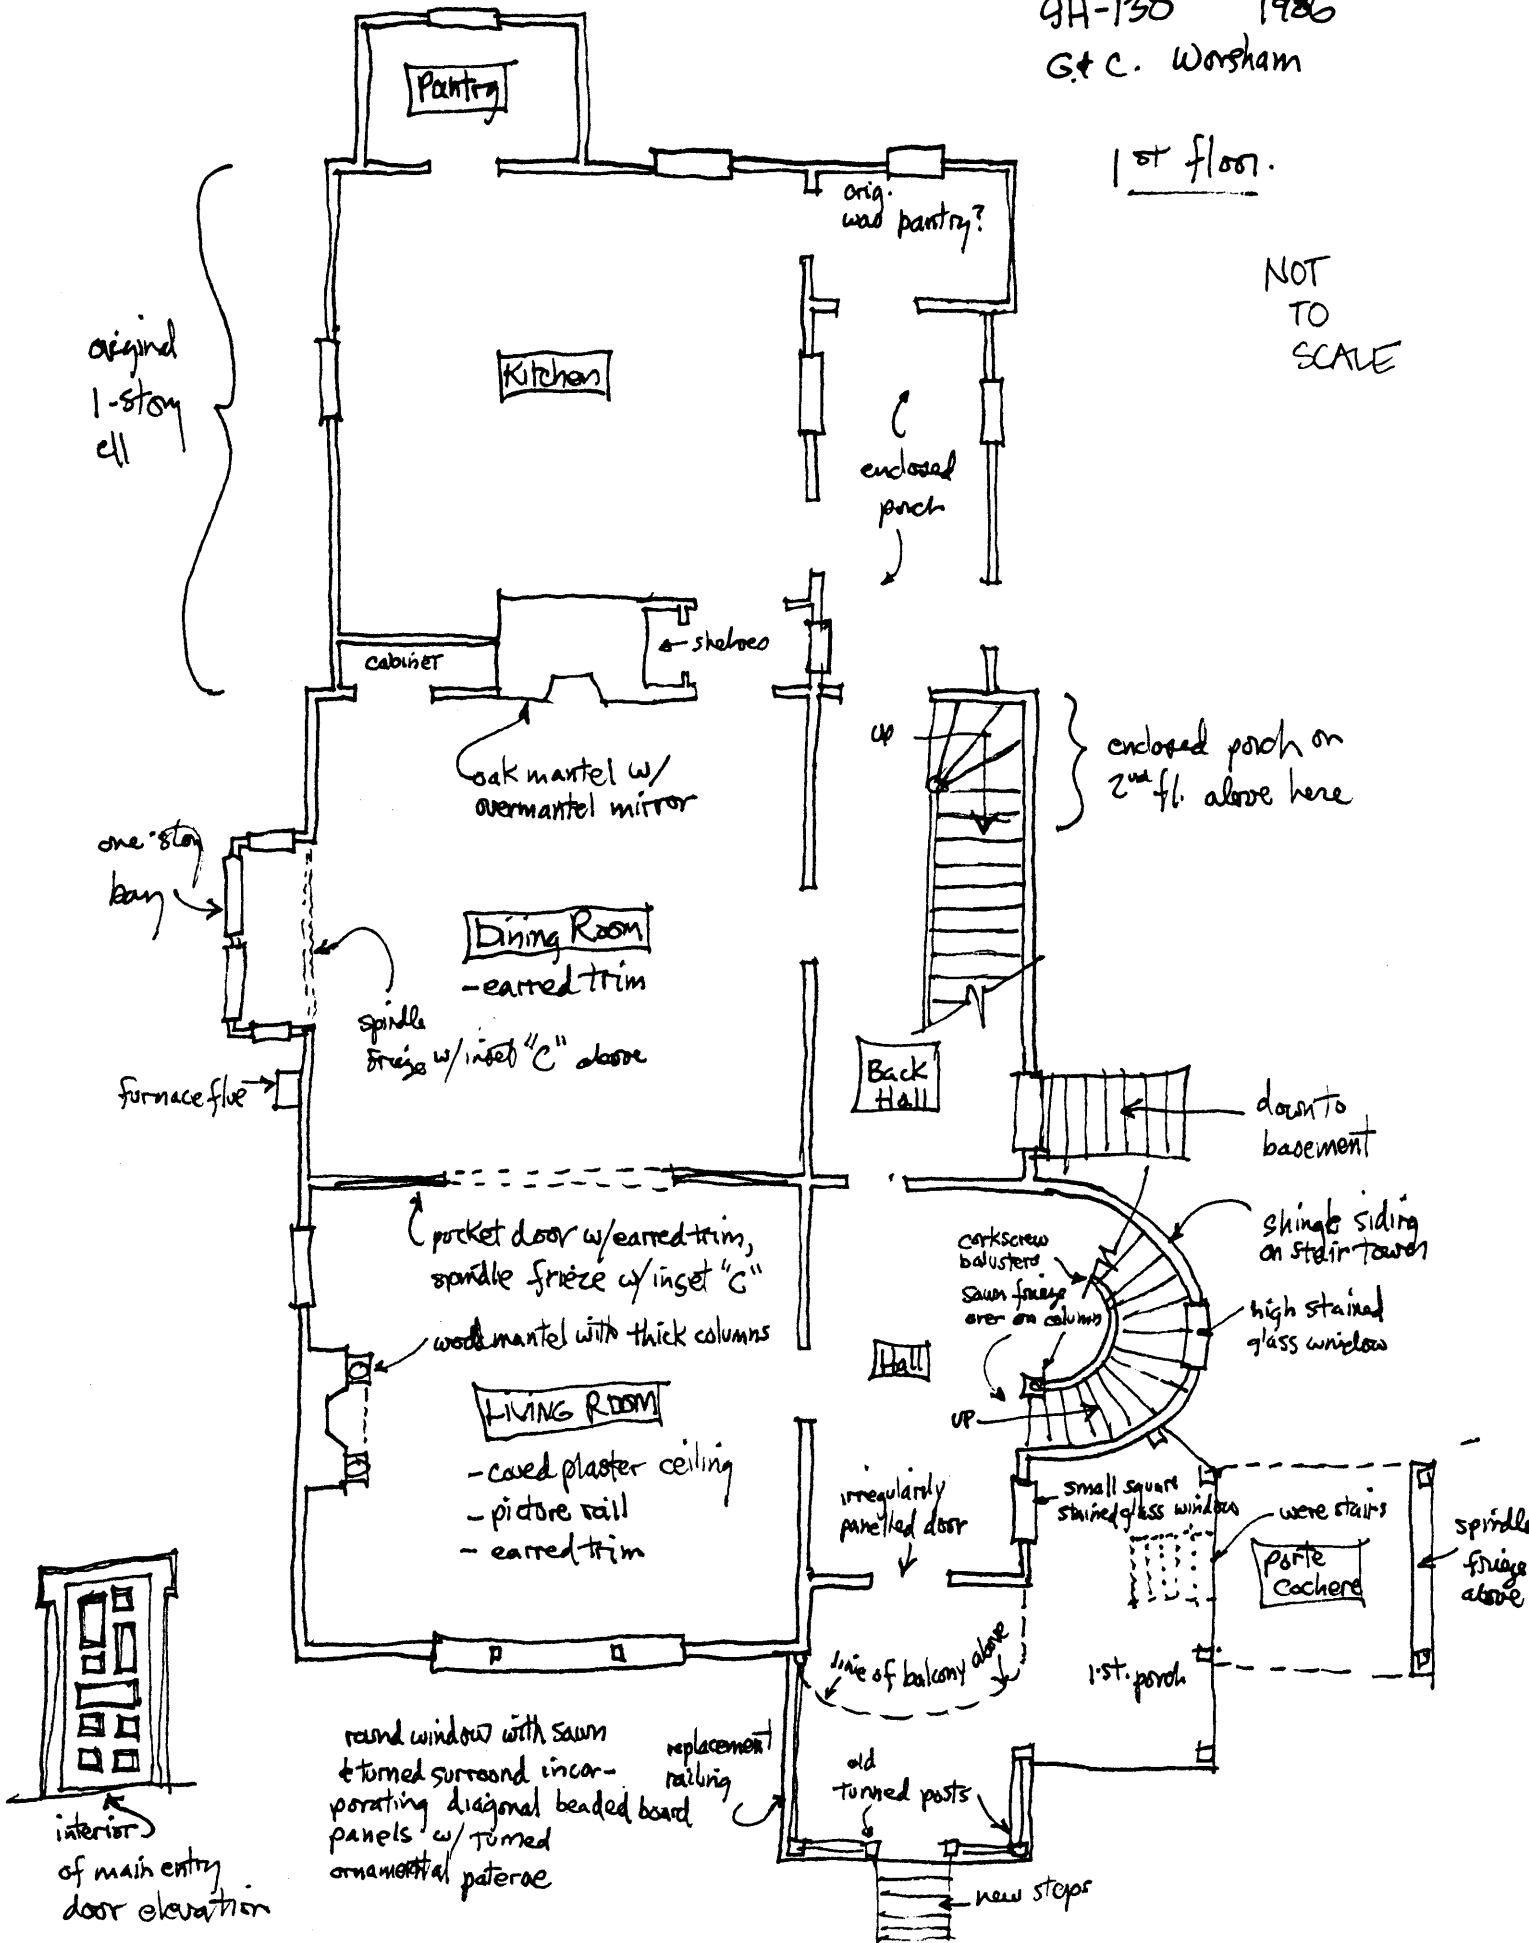 9H-130 1986
G. & C. Worsham
1st floor.
NOT
TO
SCALE
Pantry
orig.
was pantry?
original
1-story
ell
Kitchen
enclosed
porch
shelves
cabinet
UP
enclosed porch on
2nd fl. above here
oak mantel w/
overmantel mirror
one-story
bay
Dining Room
- earred trim
spindle
frieze w/inset "C" above
furnace flue
Back
Hall
down to
basement
pocket door w/earred trim,
spindle frieze w/inset "C"
corkscrew
balusters
sawn frieze
over on column
shingle siding
on stair tower
high stained
glass window
wood mantel with thick columns
Hall
LIVING ROOM
- coved plaster ceiling
- picture rail
- earred trim
UP
irregularly
panelled door
small square
stained glass window
were stairs
Porte
Cochere
spindle
frieze
above
line of balcony above
1-st. porch
round window with sawn
& turned surround incor-
porating diagonal beaded board
panels w/ turned
ornamental paterae
replacement
railing
old
turned posts
new steps
interior
of main entry
door elevation